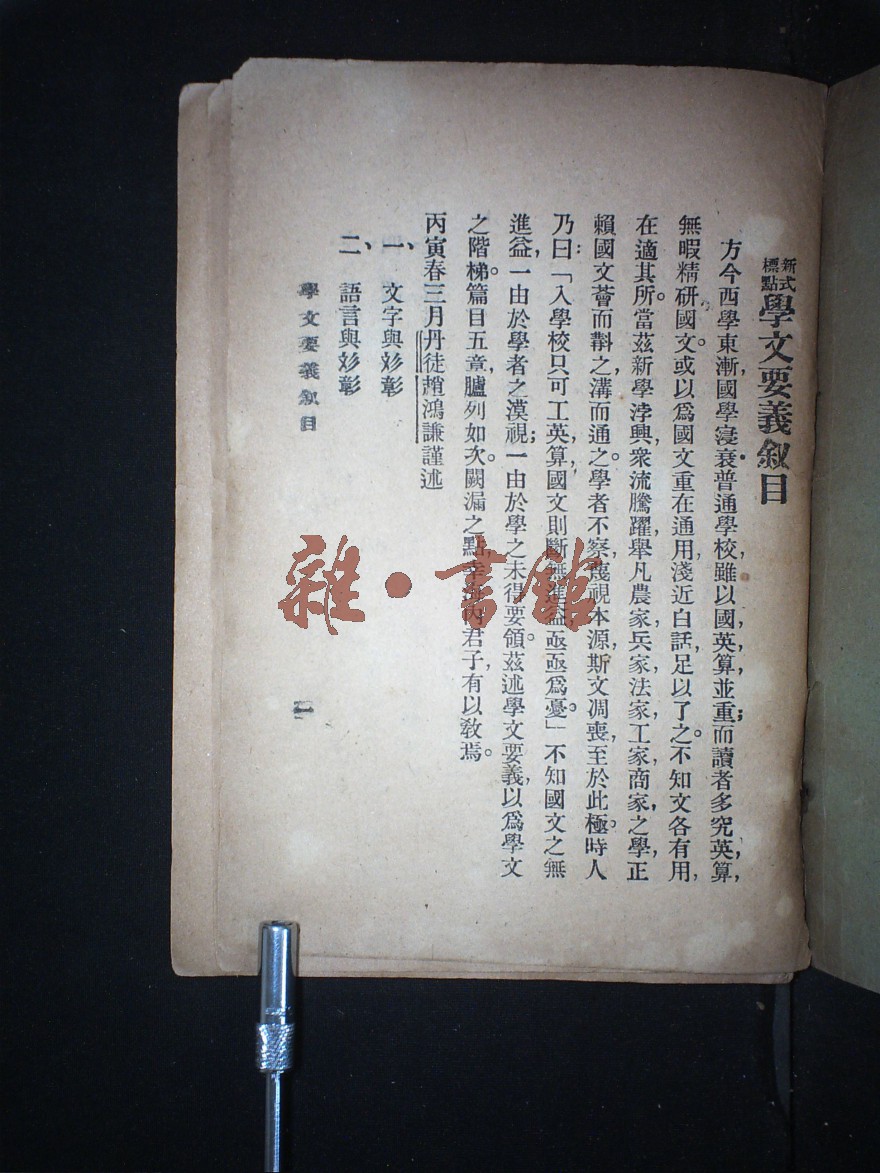 新式標點學文要義叙目
方今西學東漸,國學寖衰,普通學校,雖以國,英,算,並重;而讀者多究英,算,
無暇精研國文。或以爲國文重在通用,淺近白話,足以了之。不知文各有用,
在適其所。當茲新學浡興,衆流騰躍,舉凡農家,兵家,法家,工家,商家,之學,正
賴國文薈而斠之,溝而通之。學者不察,蔑視本源,斯文凋喪,至於此極。時人
乃曰:「入學校只可工英,算,國文則斷無進益,亟亟爲憂。」不知國文之無
進益,一由於學者之漠視;一由於學之未得要領。茲述學文要義,以爲學文
之階梯。篇目五章,臚列如次。闕漏之點,幸海內君子,有以敎焉。
丙寅春三月丹徒趙鴻謙謹述
一、文字與彣彰
二、語言與彣彰
學文要義叙目
一
雜·書館